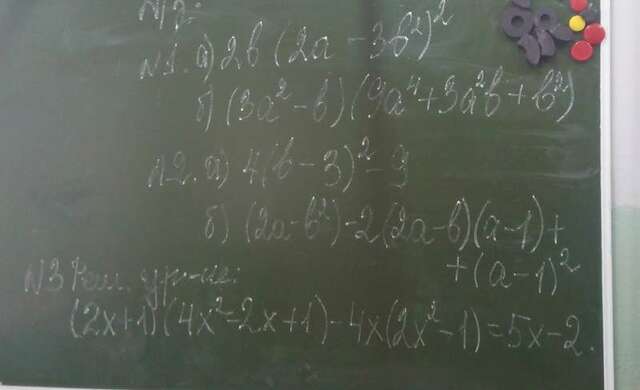 N1. а) 2b (2a - 3b²)²
б) (3a² - b)(9a⁴ + 3a²b + b²)
N2. а) 4(b - 3)² - 9
б) (2a - b²) - 2(2a - b)(a - 1) +
+ (a - 1)²
N3 Реш. ур-ие:
(2x+1)(4x²-2x+1) - 4x(2x²-1) = 5x - 2.